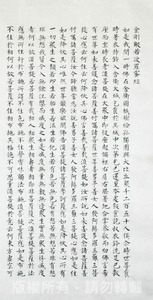 金剛般若波羅蜜經
如是我聞一時佛在舍衛國祇樹給孤獨園與大比丘眾千二百五十人俱爾時世尊食
時著衣持鉢入舍衛大城乞食於其城中次第乞已還至本處飯食訖收衣鉢洗足已敷
座而坐時長老須菩提在大眾中即從座起偏袒右肩右膝著地合掌恭敬而白佛言希
有世尊如來善護念諸菩薩善付囑諸菩薩世尊善男子善女人發阿耨多羅三藐三菩
提心應云何住云何降伏其心佛言善哉善哉須菩提如汝所說如來善護念諸菩薩善
付囑諸菩薩汝今諦聽當為汝說善男子善女人發阿耨多羅三藐三菩提心應如是住
如是降伏其心唯然世尊願樂欲聞佛告須菩提諸菩薩摩訶薩應如是降伏其心所有
一切眾生之類若卵生若胎生若濕生若化生若有色若無色若有想若無想若非有想
非無想我皆令入無餘涅槃而滅度之如是滅度無量無數無邊眾生實無眾生得滅度
者何以故須菩提若菩薩有我相人相眾生相壽者相即非菩薩復次須菩提菩薩於法
應無所住行於布施所謂不住色布施不住聲香味觸法布施須菩提菩薩應如是布施
不住於相何以故若菩薩不住相布施其福德不可思量須菩提於意云何東方虛空可